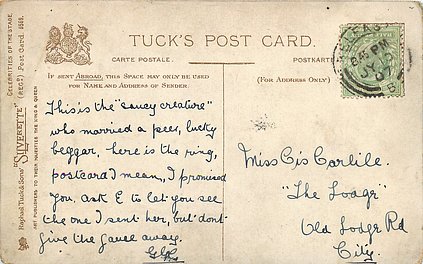 TUCK'S POST CARD.
CARTE POSTALE.
POSTKARTE
IF SENT ABROAD, THIS SPACE MAY ONLY BE USED
FOR NAME AND ADDRESS OF SENDER.
(FOR ADDRESS ONLY)
CELEBRITIES OF THE STAGE
(REGD.) Post Card
"SILVERETTE"
Raphael Tuck & Sons'
ART PUBLISHERS TO THEIR MAJESTIES THE KING & QUEEN
This is the "saucy creature"
who married a peer, lucky
beggar, here is the ring,
postcard I mean, I promised
you. ask E to let you see
the one I sent her, but dont
give the game away.
Miss Cis Carlile.
"The Lodge"
Old Lodge Rd
City.
BELFAST
PM
JY
07